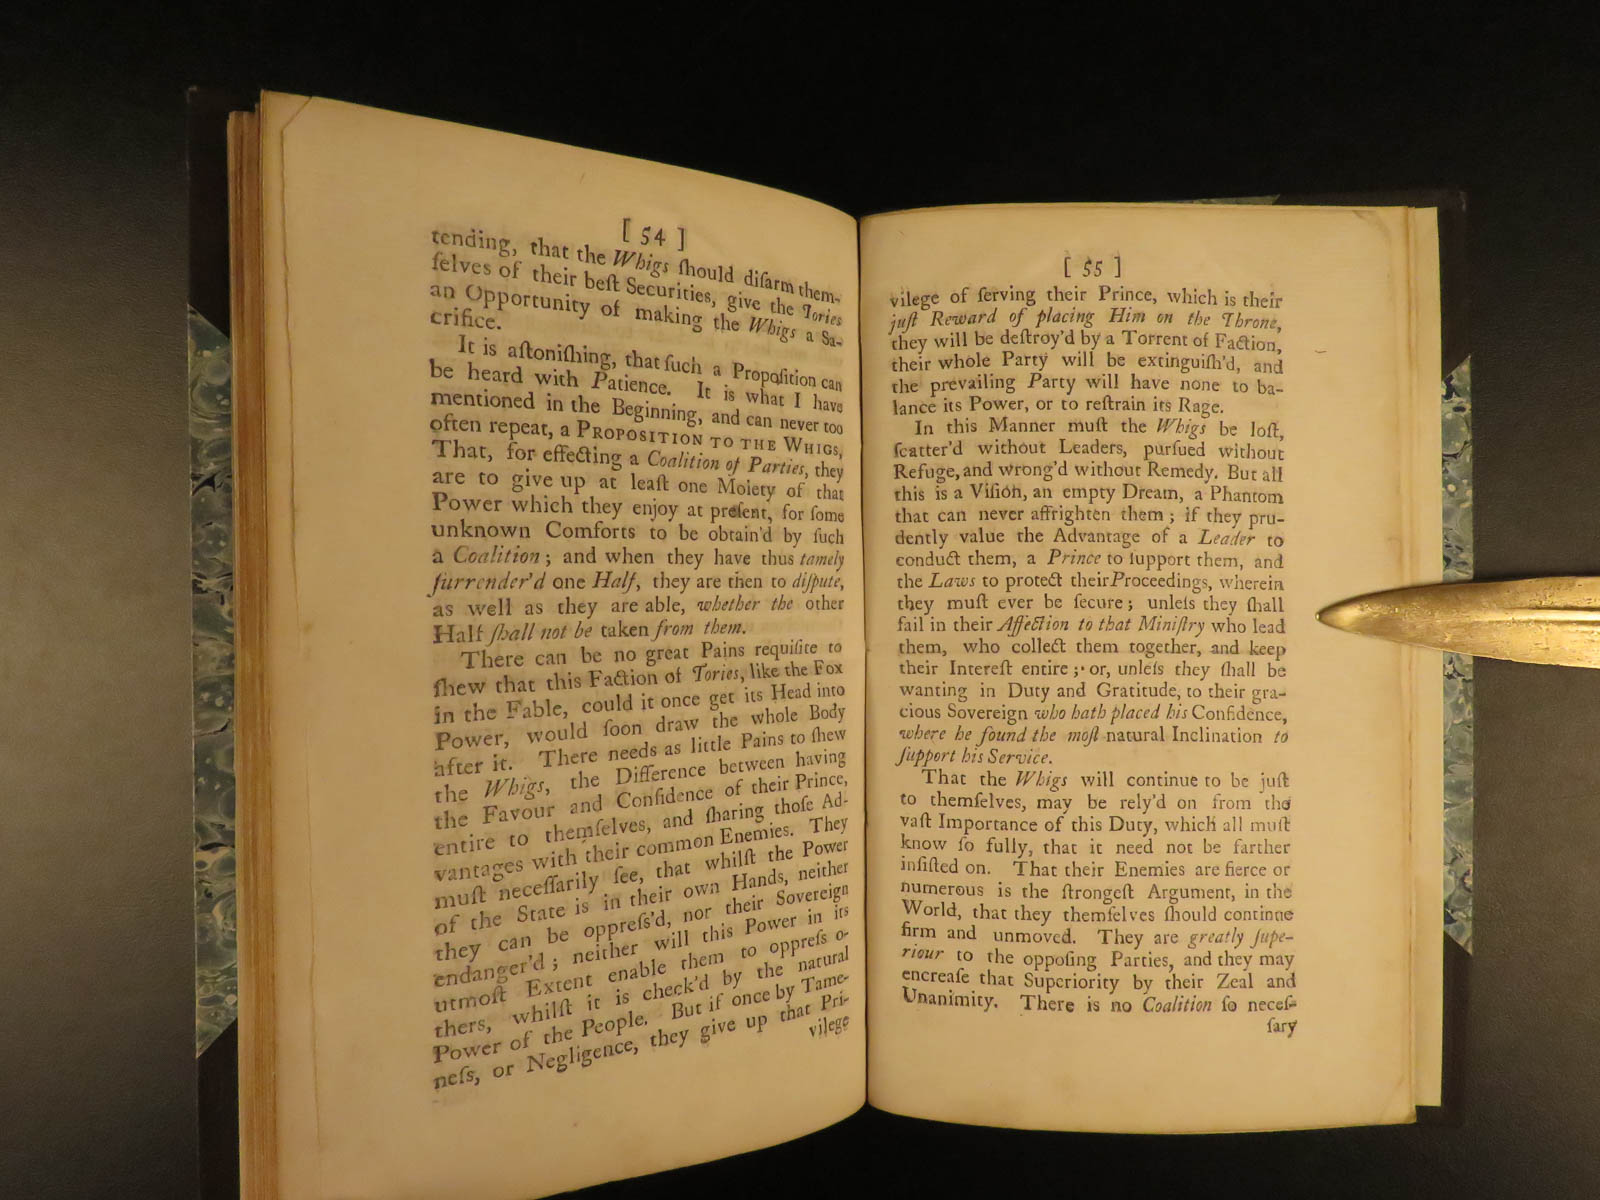 [ 54 ]
tending, that the Whigs ſhould diſarm them-
ſelves of their beſt Securities, give the Tories
an Opportunity of making the Whigs a Sa-
crifice.
It is aſtoniſhing, that ſuch a Propoſition can
be heard with Patience. It is what I have
mentioned in the Beginning, and can never too
often repeat, a PROPOSITION TO THE WHIGS,
That, for effecting a Coalition of Parties, they
are to give up at leaſt one Moiety of that
Power which they enjoy at preſent, for ſome
unknown Comforts to be obtain'd by ſuch
a Coalition; and when they have thus tamely
ſurrender'd one Half, they are then to diſpute,
as well as they are able, whether the other
Half ſhall not be taken from them.
There can be no great Pains requiſite to
ſhew that this Faction of Tories, like the Fox
in the Fable, could it once get its Head into
Power, would ſoon draw the whole Body
after it. There needs as little Pains to ſhew
the Whigs, the Difference between having
the Favour and Confidence of their Prince,
entire to themſelves, and ſharing thoſe Ad-
vantages with their common Enemies. They
muſt neceſſarily ſee, that whilſt the Power
of the State is in their own Hands, neither
they can be oppreſs'd, nor their Sovereign
endanger'd; neither will this Power in its
utmoſt Extent enable them to oppreſs o-
thers, whilſt it is check'd by the natural
Power of the People. But if once by Tame-
neſs, or Negligence, they give up that Pri-
vilege
[ 55 ]
vilege of ſerving their Prince, which is their
juſt Reward of placing Him on the Throne,
they will be deſtroy'd by a Torrent of Faction,
their whole Party will be extinguiſh'd, and
the prevailing Party will have none to ba-
lance its Power, or to reſtrain its Rage.
In this Manner muſt the Whigs be loſt,
ſcatter'd without Leaders, purſued without
Refuge, and wrong'd without Remedy. But all
this is a Viſion, an empty Dream, a Phantom
that can never affrighten them; if they pru-
dently value the Advantage of a Leader to
conduct them, a Prince to ſupport them, and
the Laws to protect their Proceedings, wherein
they muſt ever be ſecure; unleſs they ſhall
fail in their Affection to that Miniſtry who lead
them, who collect them together, and keep
their Intereſt entire; or, unleſs they ſhall be
wanting in Duty and Gratitude, to their gra-
cious Sovereign who hath placed his Confidence,
where he found the moſt natural Inclination to
ſupport his Service.
That the Whigs will continue to be juſt
to themſelves, may be rely'd on from the
vaſt Importance of this Duty, which all muſt
know ſo fully, that it need not be farther
inſiſted on. That their Enemies are fierce or
numerous is the ſtrongeſt Argument, in the
World, that they themſelves ſhould continue
firm and unmoved. They are greatly ſupe-
riour to the oppoſing Parties, and they may
encreaſe that Superiority by their Zeal and
Unanimity. There is no Coalition ſo neceſ-
ſary